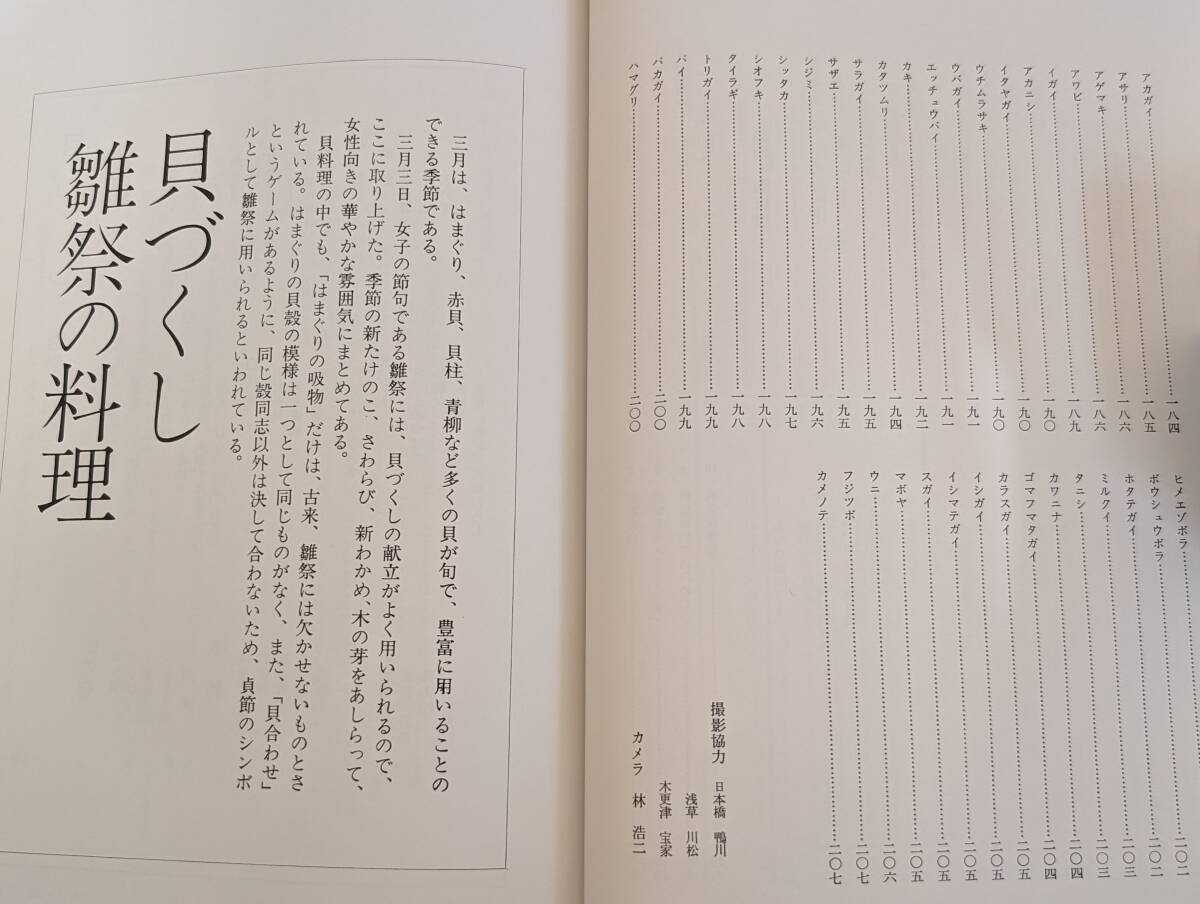 アカガイ……一八四
アサリ……一八五
アゲマキ……一八六
アワビ……一八六
イガイ……一八九
アカニシ……一九〇
イタヤガイ……一九〇
ウチムラサキ……一九〇
ウバガイ……一九一
エッチュウバイ……一九一
カキ……一九二
カタツムリ……一九四
サラガイ……一九五
サザエ……一九五
シジミ……一九六
シッタカ……一九七
シオフキ……一九八
タイラギ……一九八
トリガイ……一九九
バイ……一九九
バカガイ……二〇〇
ハマグリ……二〇〇
ヒメエゾボラ……
ボウシュウボラ……二〇二
ホタテガイ……二〇二
ミルクイ……二〇三
タニシ……二〇三
カワニナ……二〇四
ゴマフマタガイ……二〇四
カラスガイ……二〇五
イシガイ……二〇五
イシマテガイ……二〇五
スガイ……二〇五
マボヤ……二〇五
ウニ……二〇六
フジツボ……二〇七
カメノテ……二〇七
撮影協力 日本橋 鴨川
浅草 川松
木更津 宝家
カメラ 林 浩二
三月は、はまぐり、赤貝、貝柱、青柳など多くの貝が旬で、豊富に用いることの
できる季節である。
三月三日、女子の節句である雛祭には、貝づくしの献立がよく用いられるので、
ここに取り上げた。季節の新たけのこ、さわらび、新わかめ、木の芽をあしらって、
女性向きの華やかな雰囲気にまとめてある。
貝料理の中でも、「はまぐりの吸物」だけは、古来、雛祭には欠かせないものとさ
れている。はまぐりの貝殻の模様は一つとして同じものがなく、また、「貝合わせ」
というゲームがあるように、同じ殻同志以外は決して合わないため、貞節のシンボ
ルとして雛祭に用いられるといわれている。
貝づくし
雛祭の料理